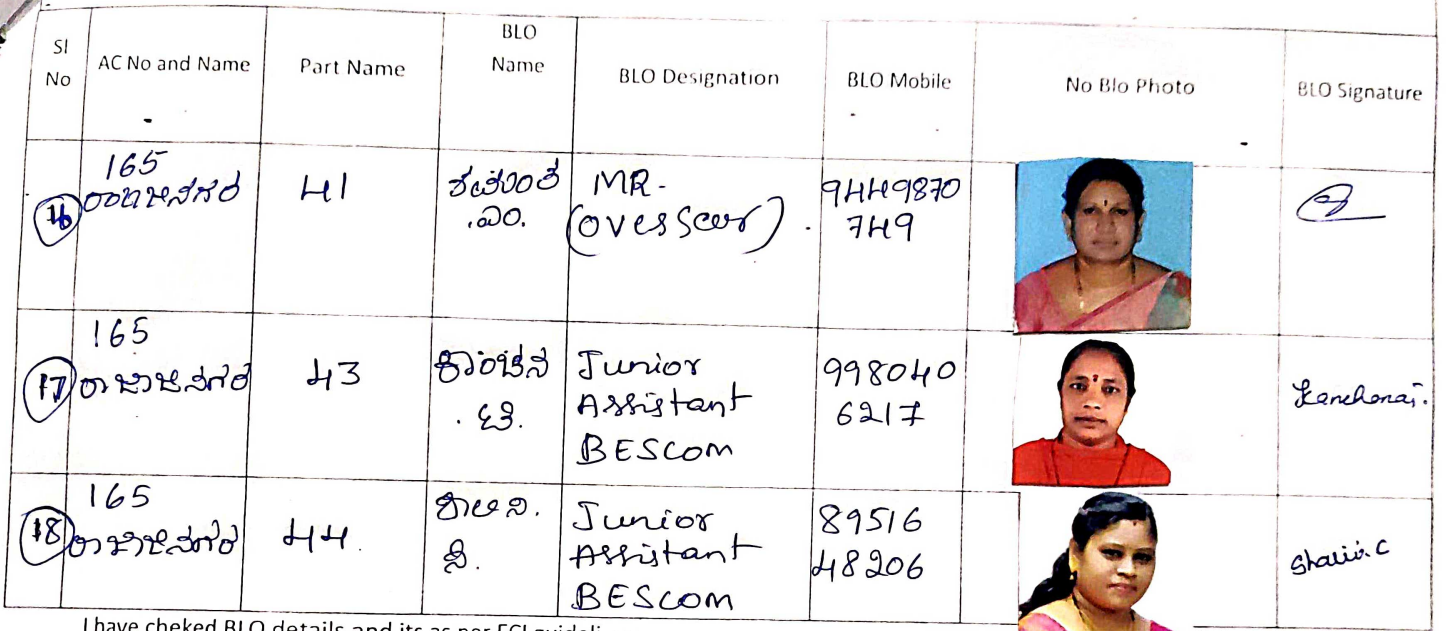 Sl No
AC No and Name
Part Name
BLO Name
BLO Designation
BLO Mobile
No Blo Photo
BLO Signature
16
165
ರಾಜಾಜಿನಗರ
41
.ಎಂ.
MR-
(overseer).
9449870
749
17
165
ರಾಜಾಜಿನಗರ
43
ಕಾಂಚನ
Junior
Assistant
BESCOM
998040
6217
18
165
ರಾಜಾಜಿನಗರ
44.
ಶಾಲಿನಿ.
ಸಿ.
Junior
Assistant
BESCOM
89516
48206
Shalini.C
I have cheked BLO details and its as per ECI